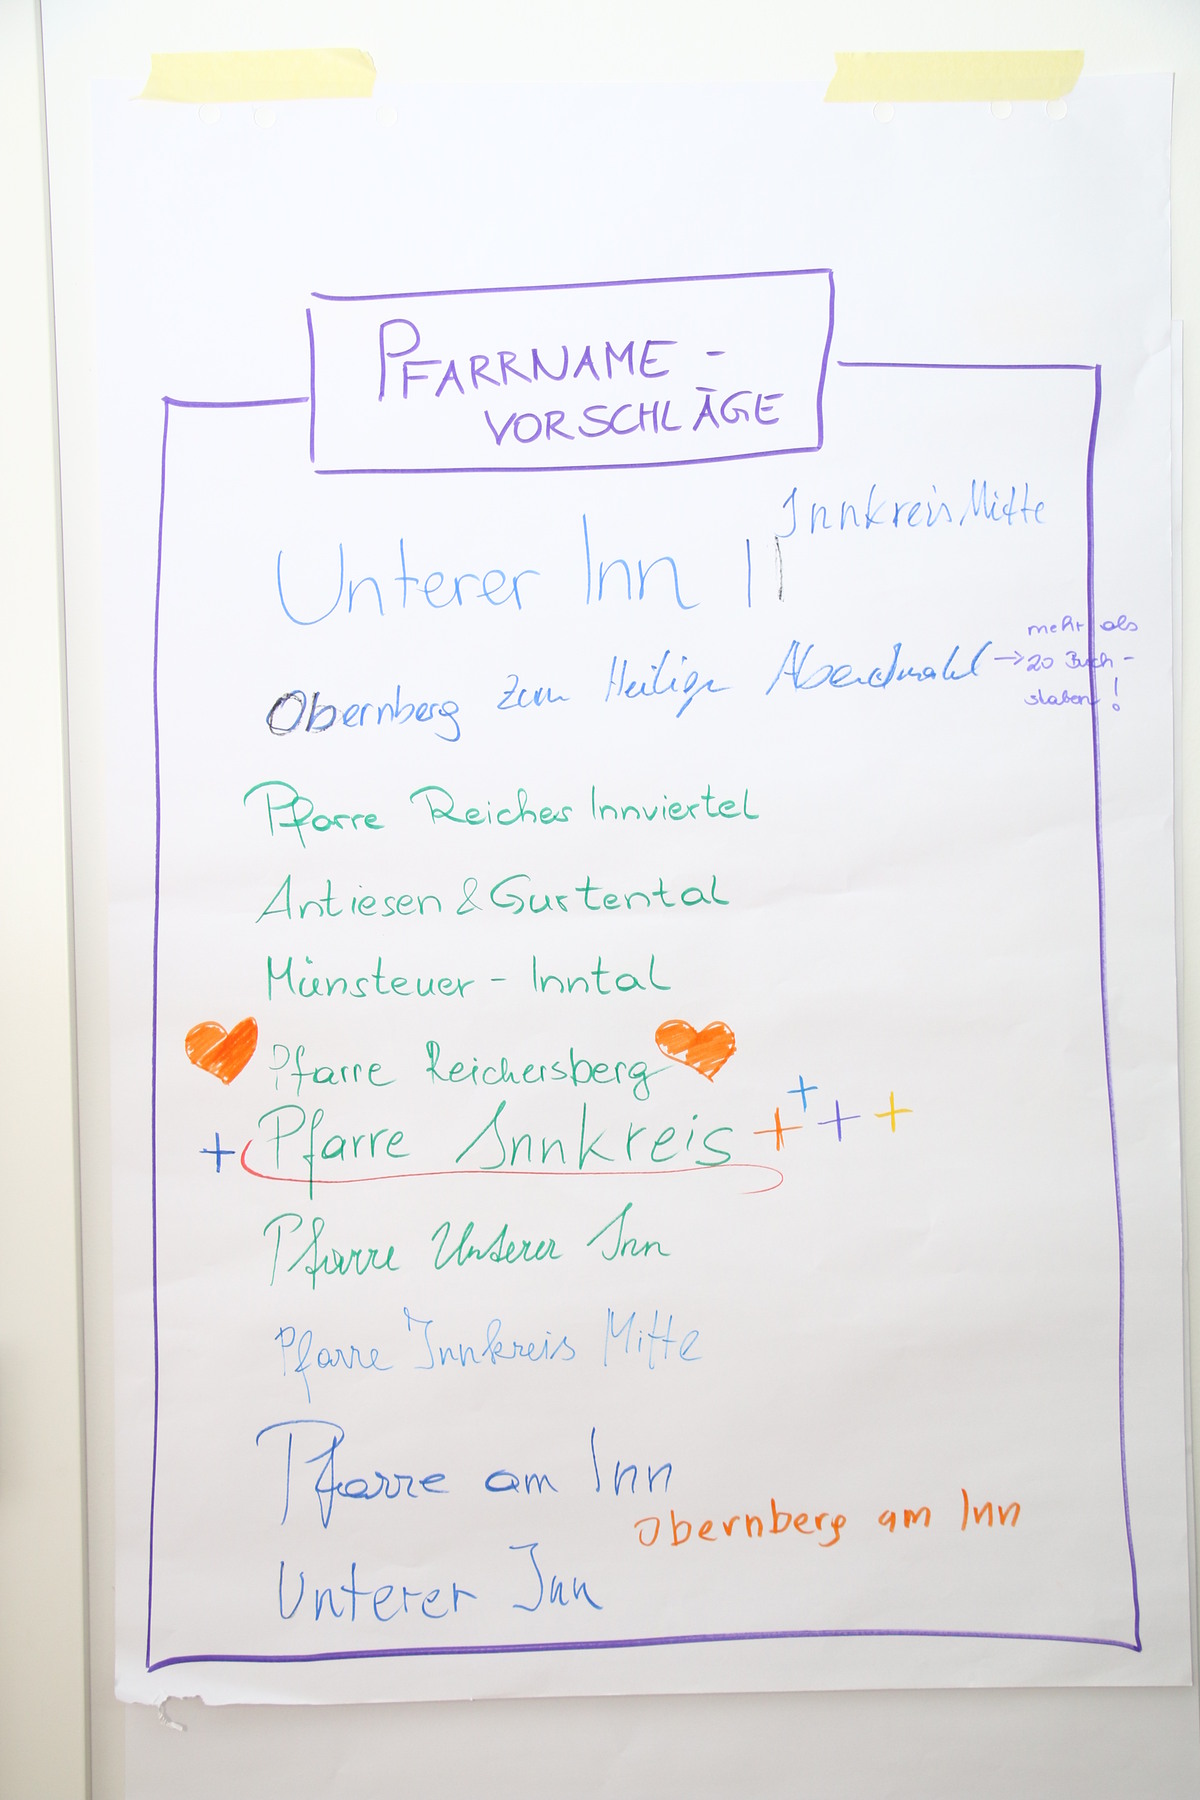 PFARRNAME -
VORSCHLÄGE
Innkreis Mitte
Unterer Inn ||
Obernberg zum Heilige Abendmahl → mehr als
20 Buch-
staben!
Pfarre Reiches Innviertel
Antiesen & Gurtental
Münsteuer - Inntal
Pfarre Reichersberg
+ Pfarre Innkreis + + + +
Pfarre Unterer Inn
Pfarre Innkreis Mitte
Pfarre am Inn
Obernberg am Inn
Unterer Inn